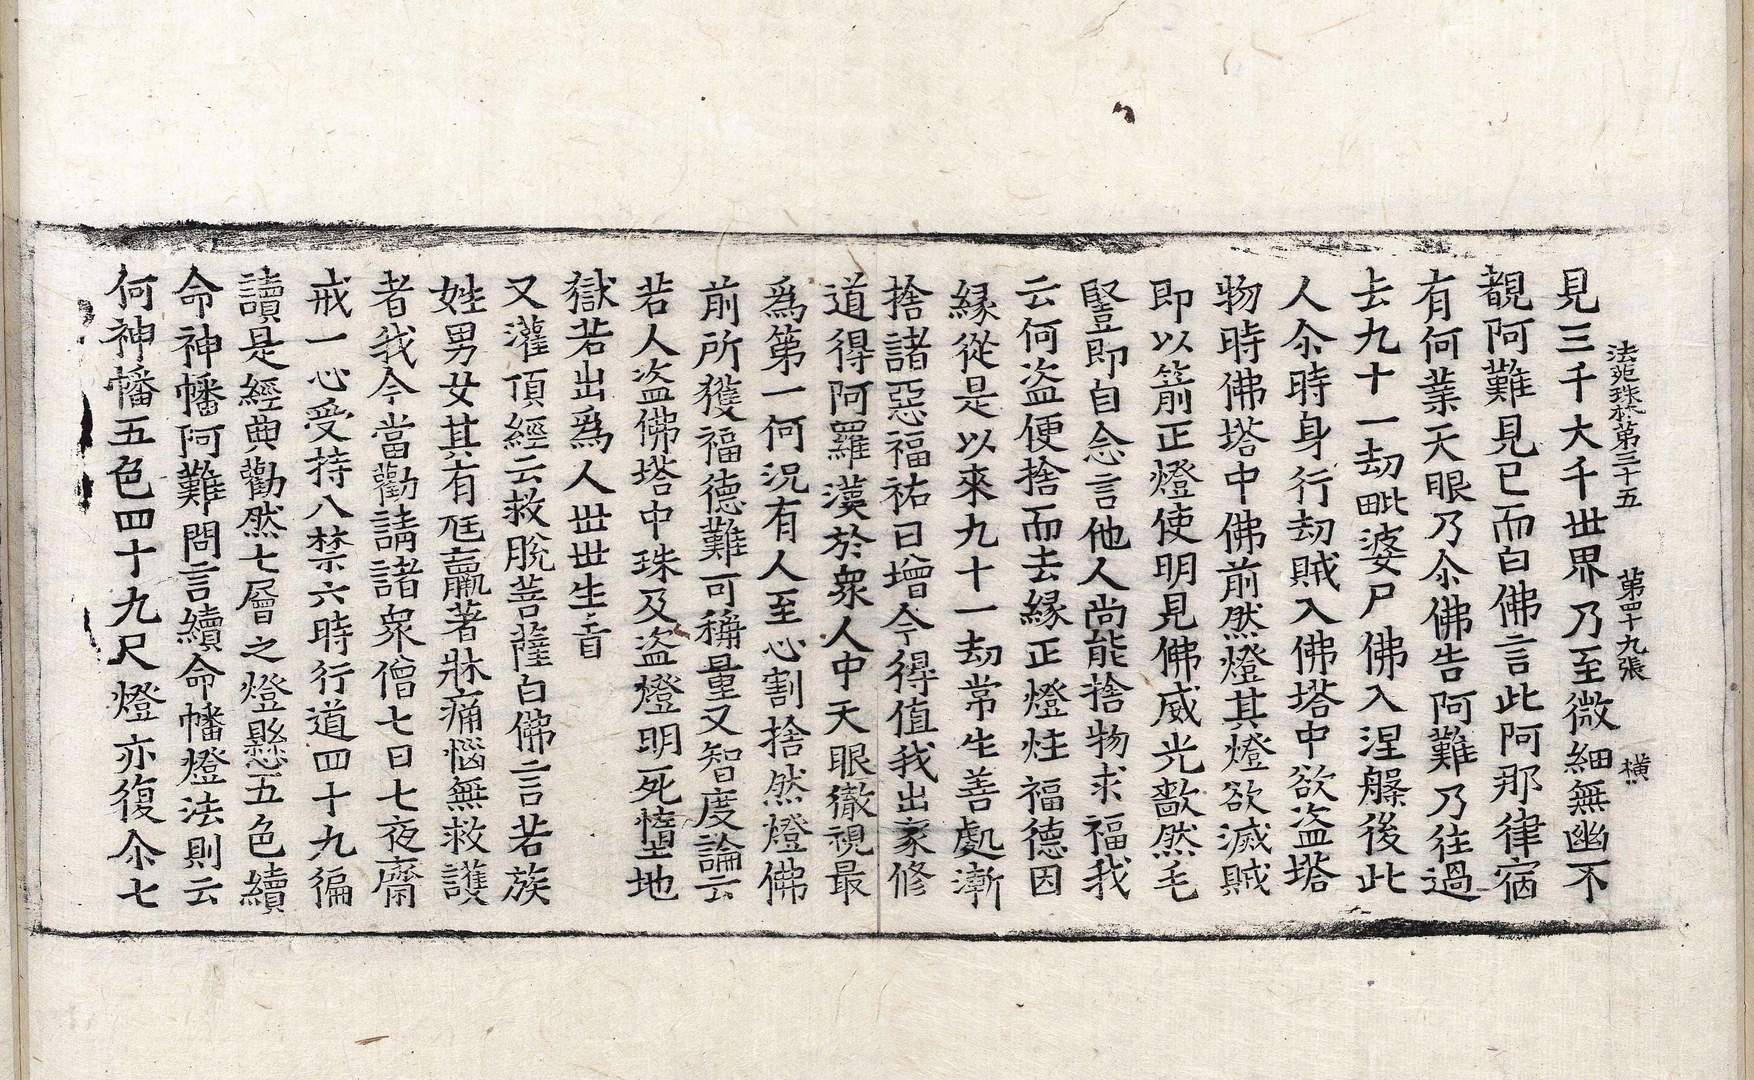 法苑珠林第三十五 第四十九張 横
見三千大千世界乃至微細無幽不
覩阿難見已而白佛言此阿那律宿
有何業天眼乃尒佛告阿難乃往過
去九十一劫毗婆尸佛入涅槃後此
人尒時身行劫賊入佛塔中欲盗塔
物時佛塔中佛前然燈其燈欲滅賊
即以箭正燈使明見佛威光歘然毛
竪即自念言他人尚能捨物求福我
云何盗便捨而去緣正燈炷福德因
緣從是以來九十一劫常生善處漸
捨諸惡福祐日增今得值我出家修
道得阿羅漢於衆人中天眼徹視最
爲第一何況有人至心割捨然燈佛
前所獲福德難可稱量又智度論云
若人盗佛塔中珠及盗燈明死墮地
獄若出爲人世世生盲
又灌頂經云救脫菩薩白佛言若族
姓男女其有尩羸著牀痛惱無救護
者我今當勸請諸衆僧七日七夜齋
戒一心受持八禁六時行道四十九徧
讀是經典勸然七層之燈懸五色續
命神幡阿難問言續命幡燈法則云
何神幡五色四十九尺燈亦復尒七